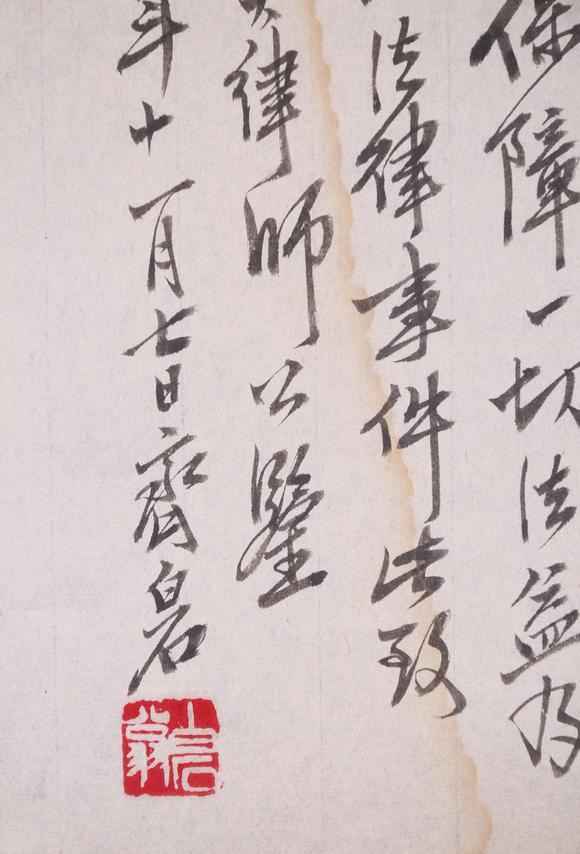 保障一切法益为
法律事件此致
律师公鉴
年十一月七日齐白石